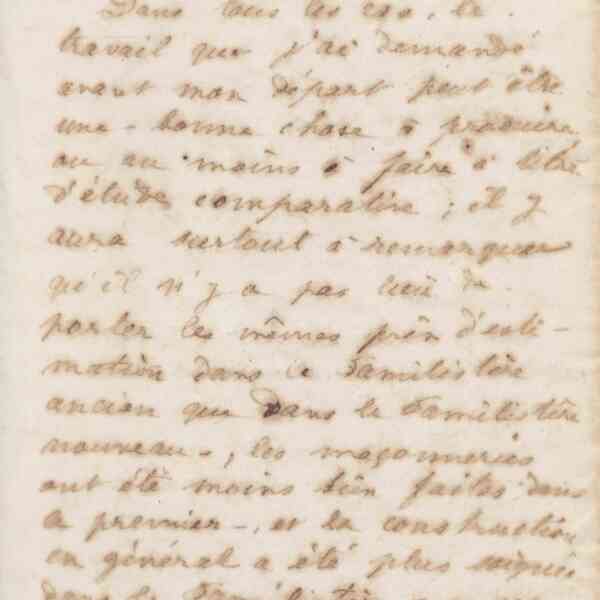 Dans tous les cas, le
travail que j'ai demandé
avant mon départ peut être
une bonne chose à produire
ou au moins à faire à titre
d'étude comparative ; il y
aura surtout à remarquer
qu'il n'y a pas lieu de
porter les mêmes prix d'esti-
mation dans le Familistère
ancien que dans le Familistère
nouveau, les maçonneries
ont été moins bien faites dans
le premier, et la construction
en général a été plus soignée
dans le Familistère